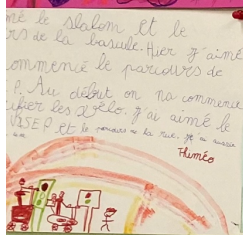 mé le slalom et le
rs de la basule. Hier j'aimé
commencé le parcours de
P. Au début on na commencé
ifier les xélo. j'ai aimé le
USEP et le parcours de la rue. j'ai aussi
Thiméo